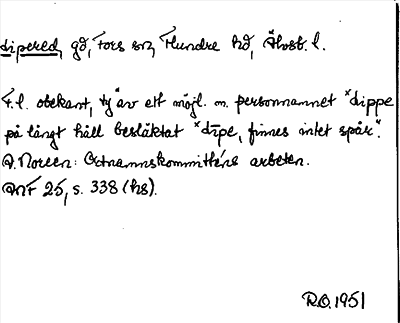 Dipered, gd, Fors sn, Flundre hd, Älvsb. l.
F. l. obekant, ty "av ett möjl. m. personnamnet *Dippe
på långt håll besläktat *Dīpe, finnes intet spår".
A. Noreen: Ortnamnskommitténs arbeten.
ANF 25, s. 338 (hs).
R.O. 1951